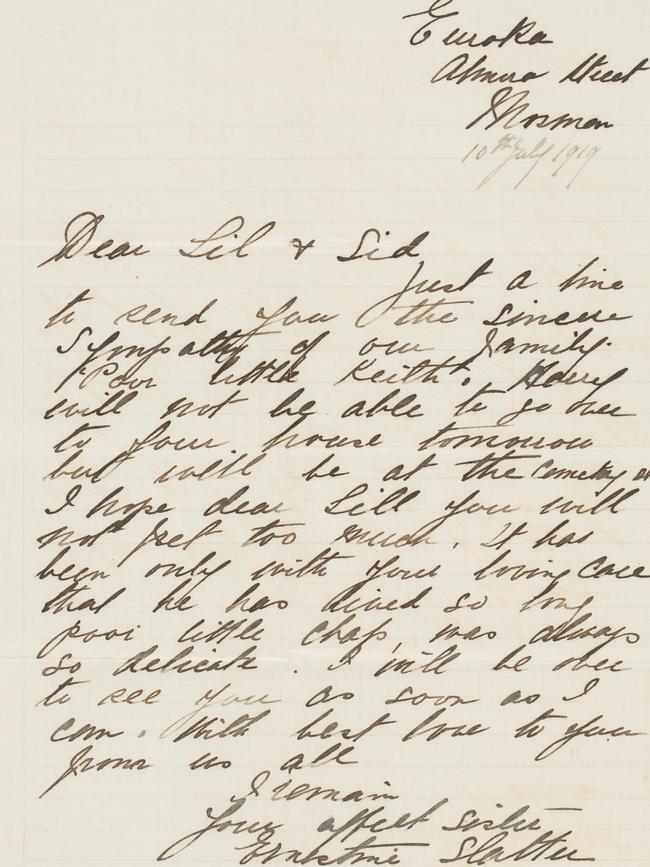 Eureka
Almora Street
Mosman
10th July 1919
Dear Lil & Sid
Just a line
to send you the sincere
Sympathy of our family.
"Poor little Keith". Harry
will not be able to go over
to your house tomorrow
but will be at the Cemetery
I hope dear Lill you will
not fret too much. It has
been only with your loving care
that he has lived so long
poor little chap, was always
so delicate. I will be over
to see you as soon as I
can. With best love to you
from us all
I remain
Your affect sister
Ernestine Slatter